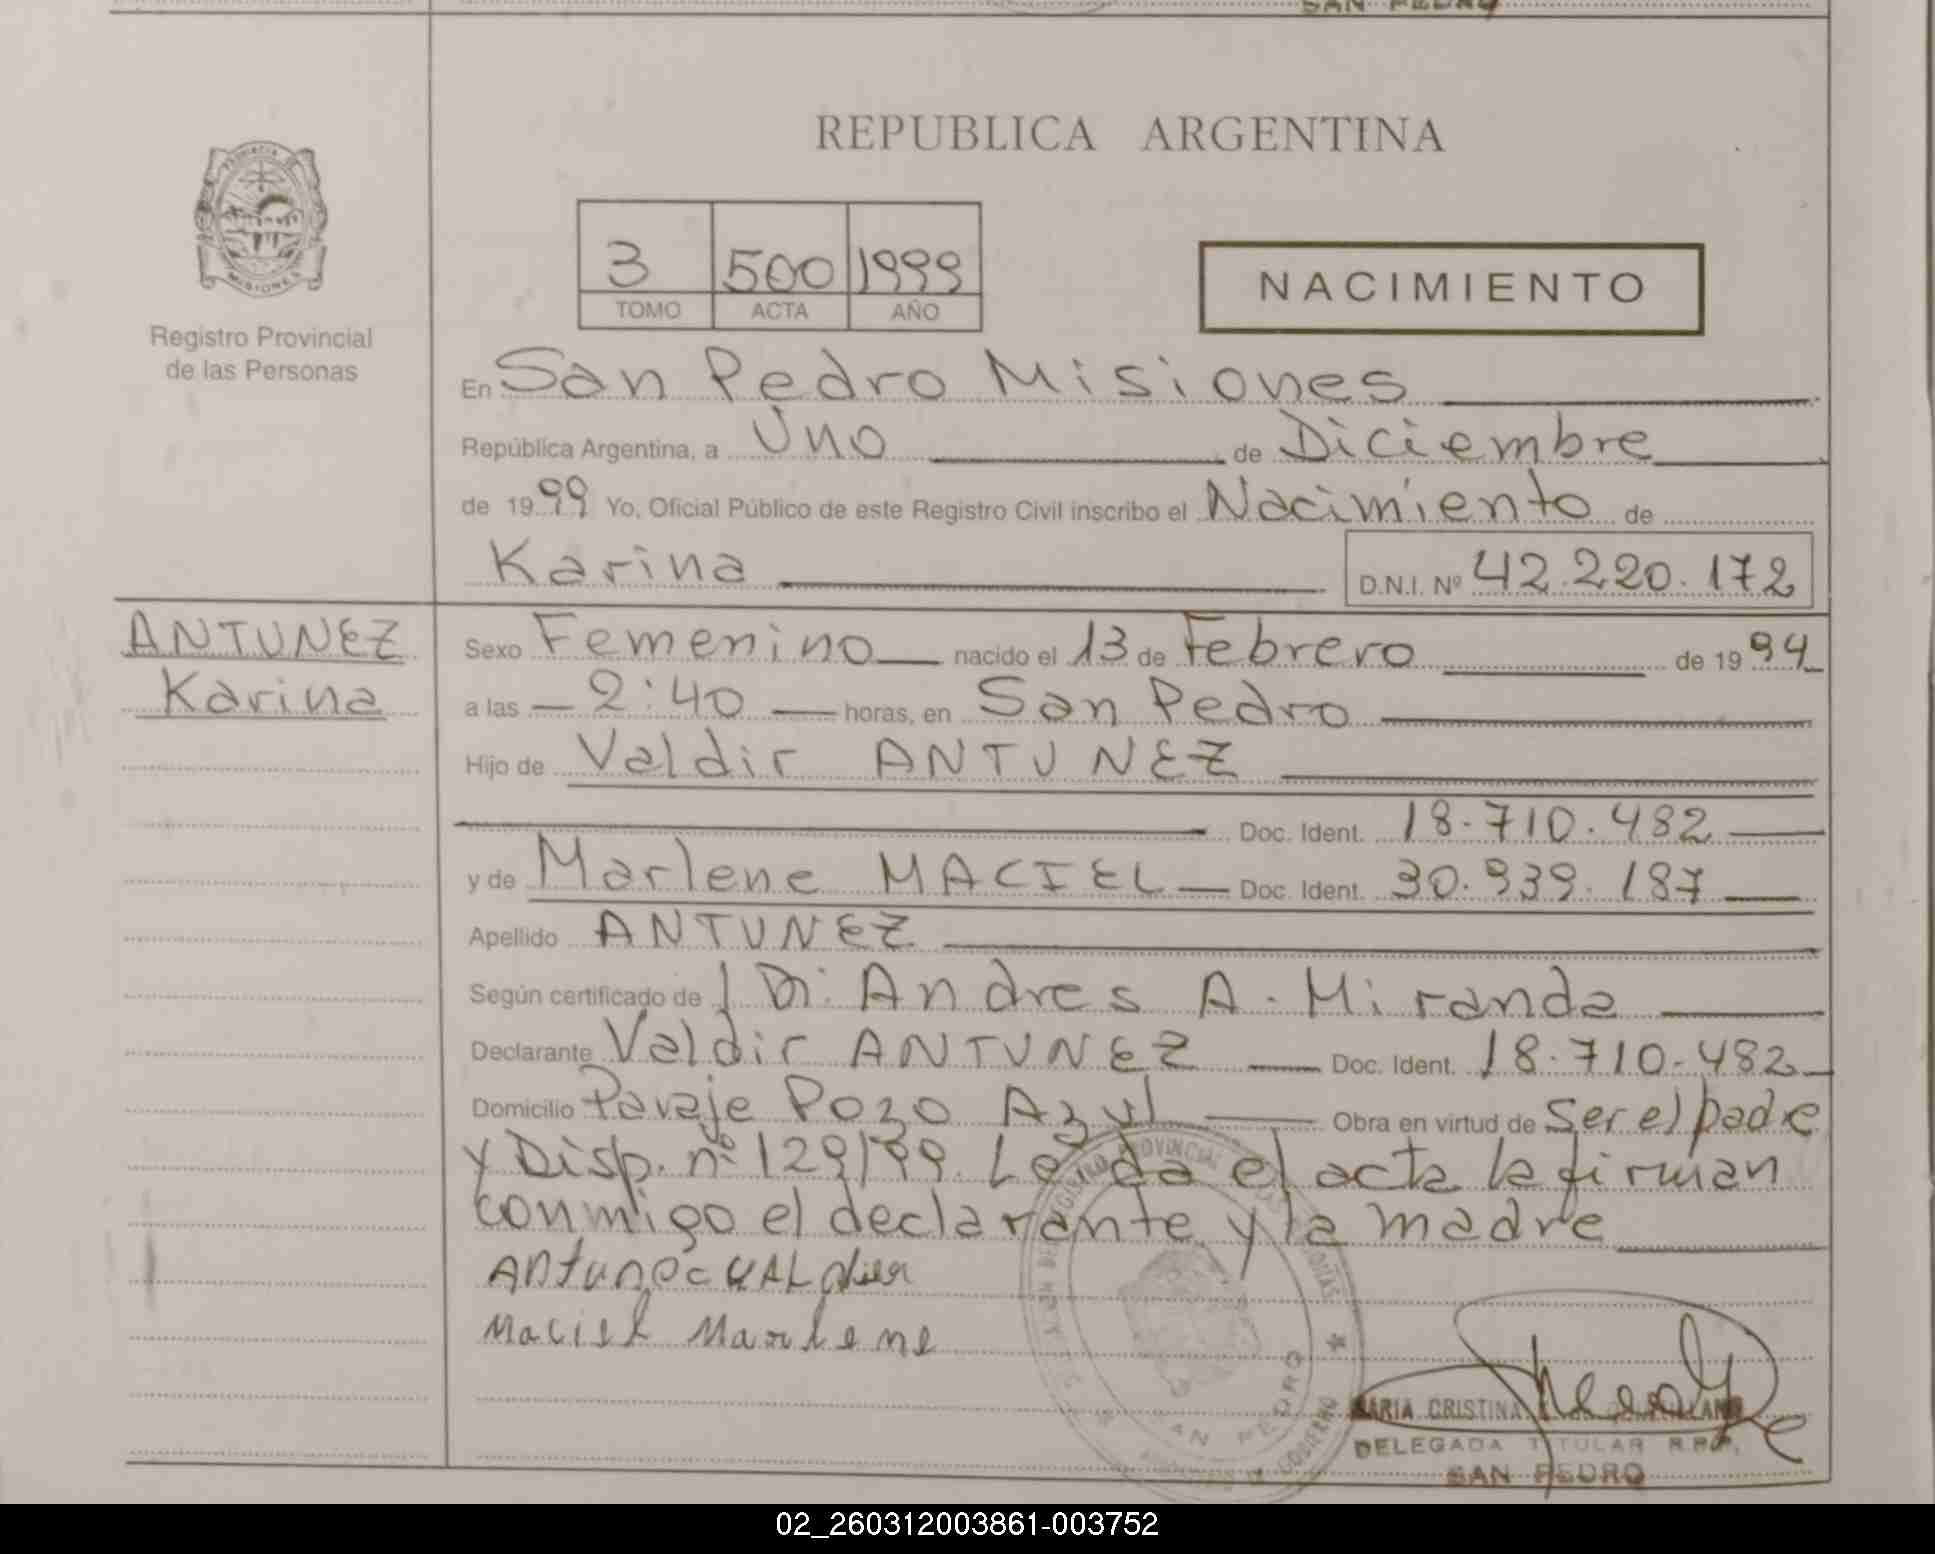 SAN PEDRO
REPUBLICA ARGENTINA
PROVINCIA DE
MISIONES
Registro Provincial
de las Personas
3 500 1999
TOMO ACTA AÑO
NACIMIENTO
En San Pedro Misiones
República Argentina, a Uno de Diciembre
de 1999 Yo, Oficial Público de este Registro Civil inscribo el Nacimiento de
Karina D.N.I. Nº 42.220.172
ANTUNEZ
Karina
Sexo Femenino nacido el 13 de Febrero de 1994
a las 2:40 horas, en San Pedro
Hijo de Valdir ANTUNEZ
Doc. Ident. 18.710.482
y de Marlene MACIEL Doc. Ident. 30.939.187
Apellido ANTUNEZ
Según certificado de Dr. Andres A. Miranda
Declarante Valdir ANTUNEZ Doc. Ident. 18.710.482
Domicilio Paraje Pozo Azul Obra en virtud de Ser el padre
y Disp. nº 129/99. Leida el acta la firman
conmigo el declarante y la madre
Maciel Marlene
REGISTRO PROVINCIAL DE LAS PERSONAS
SAN PEDRO
MARIA CRISTINA
DELEGADA TITULAR R.P.P.
SAN PEDRO
02_260312003861-003752